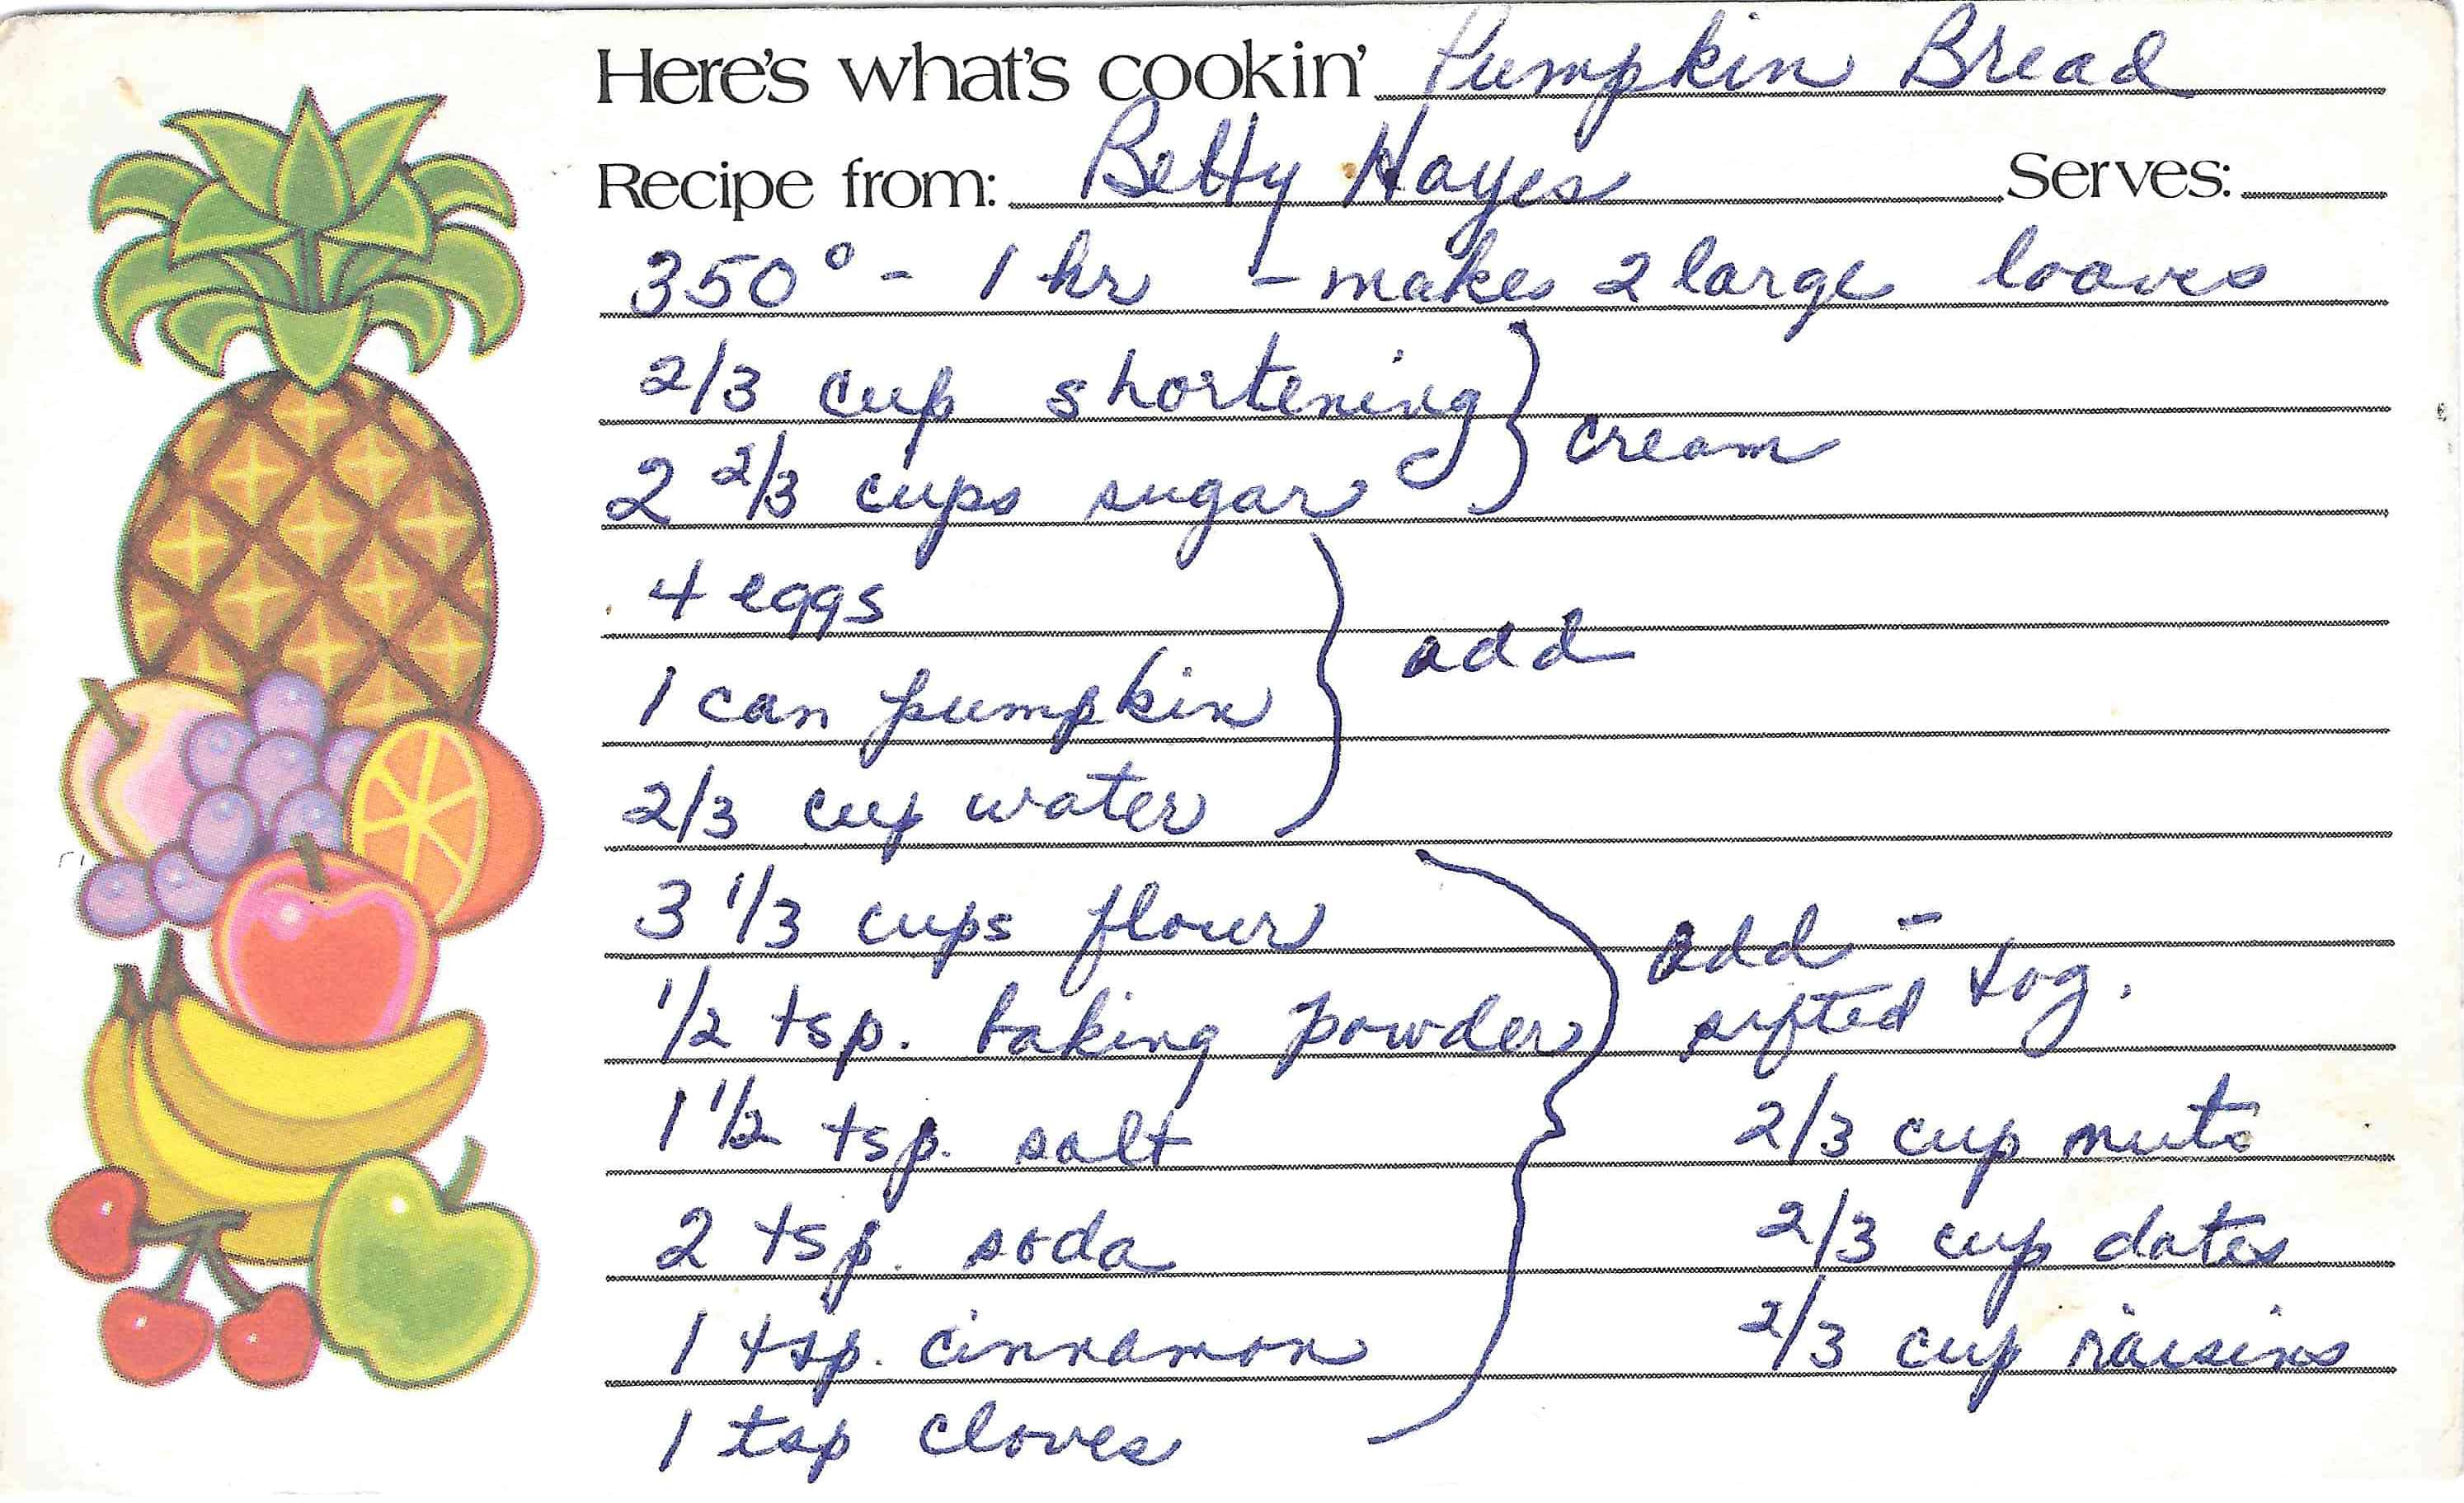 Here's what's cookin' Pumpkin Bread
Recipe from: Betty Hayes Serves:
350° - 1 hr - makes 2 large loaves
2/3 cup shortening
2 2/3 cups sugar
cream
4 eggs
1 can pumpkin
2/3 cup water
add
3 1/3 cups flour
1/2 tsp. baking powder
1 1/2 tsp. salt
2 tsp. soda
1 tsp. cinnamon
1 tsp cloves
add -
sifted tog.
2/3 cup nuts
2/3 cup dates
2/3 cup raisins